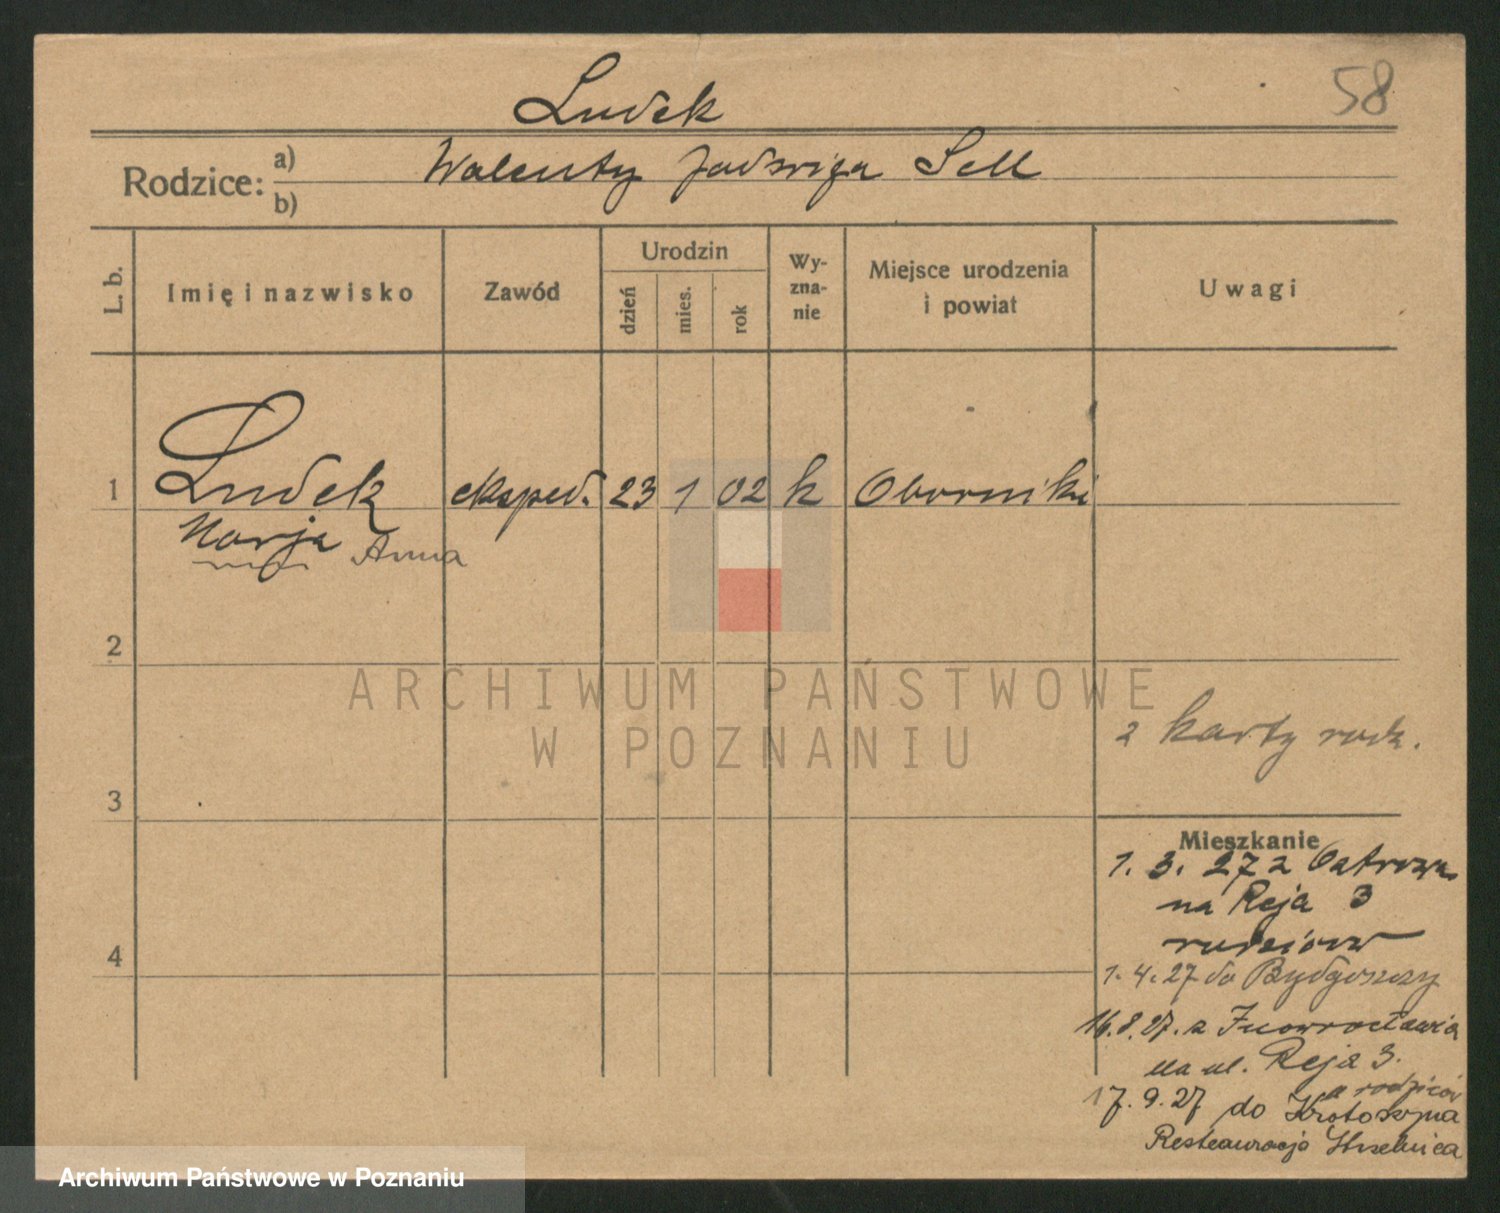 58
Ludek
Rodzice: a) Walenty Jadwiga Sell
b)
L. b.
Imię i nazwisko
Zawód
Urodzin
dzień
mies.
rok
Wy-
zna-
nie
Miejsce urodzenia
i powiat
Uwagi
1 Ludek eksped. 23 1 02 k Oborniki
Marja Anna
2
2 karty rodz.
3
Mieszkanie
1. 3. 27 z Ostrowa
na Reja 3
rodziców
4
1. 4. 27 do Bydgoszczy
16. 8. 27. z Inowrocławia
na ul. Reja 3.
u rodziców
17. 9. 27 do Krotoszyna
Restauracja Strzelnica
ARCHIWUM PAŃSTWOWE
W POZNANIU
Archiwum Państwowe w Poznaniu